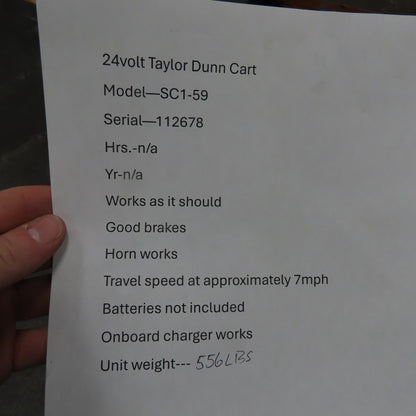 24volt Taylor Dunn Cart
Model—SC1-59
Serial—112678
Hrs.-n/a
Yr-n/a
Works as it should
Good brakes
Horn works
Travel speed at approximately 7mph
Batteries not included
Onboard charger works
Unit weight--- 556LBS